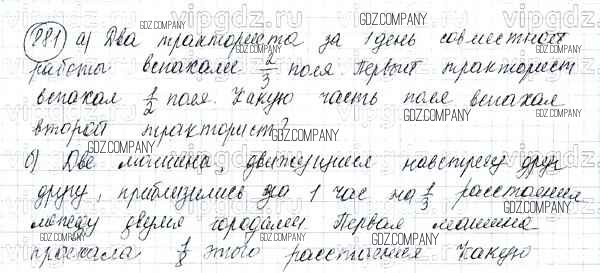 881 а) Два тракториста за 1 день совместной
работы вспахали 2/3 поля. Первый тракторист
вспахал 1/2 поля. Какую часть поля вспахал
второй тракторист?
б) Две машины, движущиеся навстречу друг
другу, приблизились за 1 час на 1/3 расстояния
между двумя городами Первая машина
проехала 1/5 этого расстояния Какую
GDZ.COMPANY
GDZ.COMPANY
GDZ.COMPANY
GDZ.COMPANY
GDZ.COMPANY
GDZ.COMPANY
GDZ.COMPANY
GDZ.COMPANY
GDZ.COMPANY
GDZ.COMPANY
GDZ.COMPANY